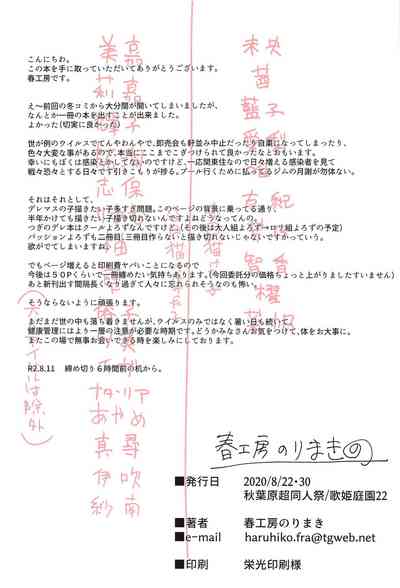 こんにちわ。
この本を手に取っていただいてありがとうございます。
春工房です。
え〜前回の冬コミから大分間が開いてしまいましたが、
なんとか一冊の本を出すことが出来ました。
よかった(切実に良かった)
世が例のウイルスでてんやわんやで、即売会も軒並み中止だったり自粛になってしまったり、
色々大変な事があるので、本当にここまでこぎつけられて良かったなとおもいます。
幸いにもぼくは感染とかしてないのですけど、一応関東住なので日々増える感染者を見て
戦々恐々とする日々です引きこもりが捗る。プール行くために払ってるジムの月謝が勿体ない。
それはそれとして、
デレマスの子描きたい子多すぎ問題。このページの背景に乗ってる通り、
半年かけても描きたい子描き切れないんですよねどうなってんの。
つぎのデレ本はクールよろずなんですけど、(その後は大人組よろず→ロリ組よろずの予定)
パッションよろずも二冊目(三冊目作らないと描き切れないじゃないですかっていう。
欲がでてしまいますね。
でもページ増えると印刷費ヤバいことになるので
今後は50Pくらいで一冊締めたい気持ちあります。(今回委託分の価格ちょっと上がりましたすいません)
あと新刊出す間隔長くなり過ぎて人々に忘れられそうなのも怖い。
そうならないように頑張ります。
まだまだ世の中も落ち着きませんが、ウイルスのみではなく暑い日も続いて、
健康管理にはより一層の注意が必要な時期です。どうかみなさんお気をつけて、体をお大事に。
またこの場で無事お会いできる時を楽しみにしております。
R2.8.11 締め切り6時間前の机から。
春工房のりまき
■発行日 2020/8/22・30
秋葉原超同人祭/歌姫庭園22
■著者 春工房のりまき
■e-mail haruhiko.fra@tgweb.net
■印刷 栄光印刷様